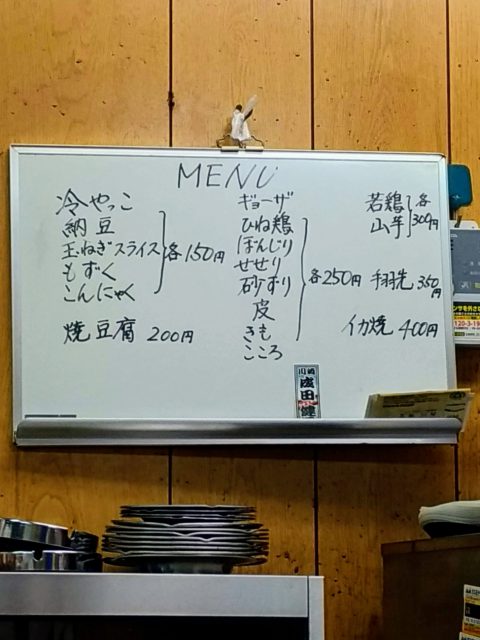 MENU
冷やっこ
納豆
玉ねぎスライス
もずく
こんにゃく
各150円
焼豆腐 200円
ギョーザ
ひね鶏
ぼんじり
せせり
砂ずり
皮
きも
こころ
各250円
若鶏
山芋
各300円
手羽先 350円
イカ焼 400円
川崎
成田